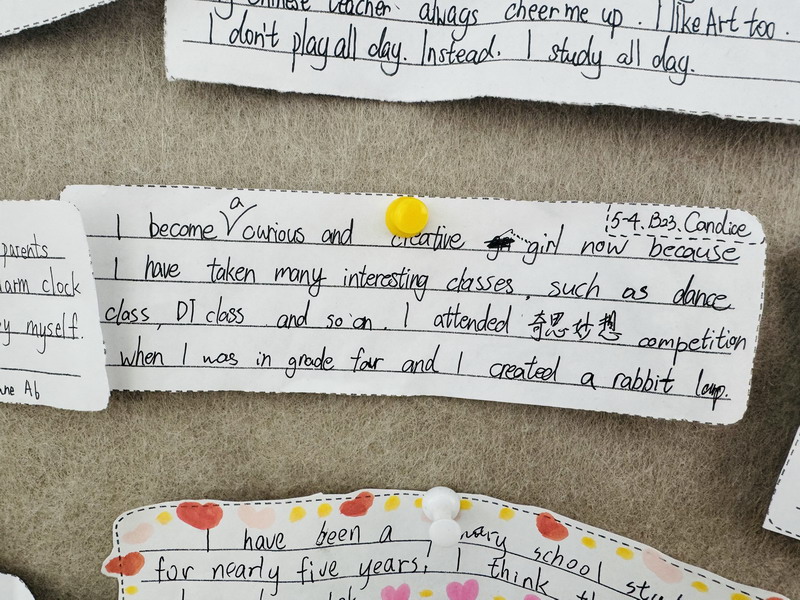 Chinese teacher always cheer me up. I like Art too.
I don't play all day. Instead. I study all day.
5-4. B23. Candice
I become a curious and creative girl now because
I have taken many interesting classes, such as dance
class, DI class and so on. I attended 奇思妙想 competition
when I was in grade four and I created a rabbit lamp.
parents
arm clock
y myself.
ne A6
I have been a nary school stu
for nearly five years! I think th